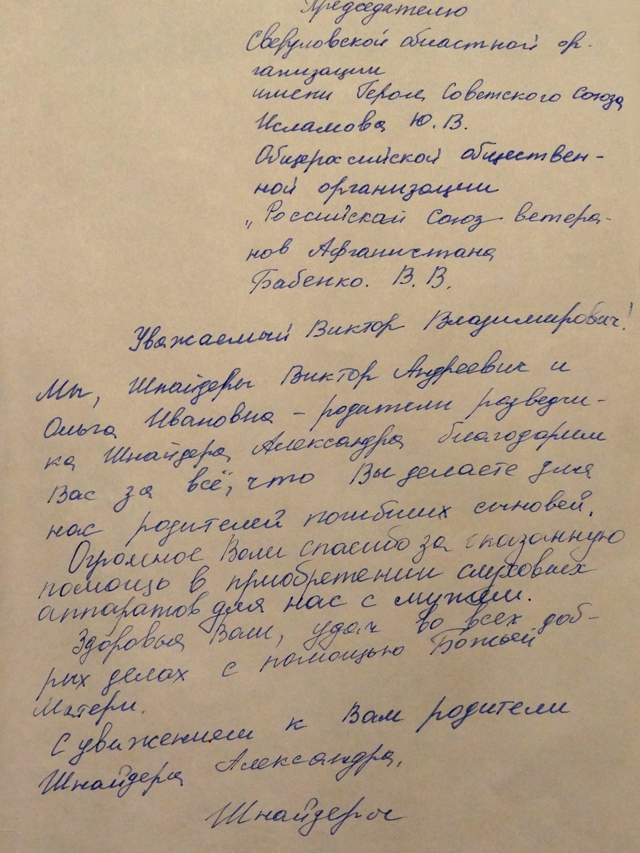 Председателю
Свердловской областной ор-
ганизации
имени Героя Советского Союза
Исламова Ю. В.
Общероссийской обществен-
ной организации
„Российский Союз ветера-
нов Афганистана
Бабенко. В. В.
Уважаемый Виктор Владимирович!
Мы, Шнайдеры Виктор Андреевич и
Ольга Ивановна – родители разведчи-
ка Шнайдера Александра благодарим
Вас за всё, что Вы делаете для
нас родителей погибших сыновей.
Огромное Вам спасибо за оказанную
помощь в приобретении слуховых
аппаратов для нас с мужем.
Здоровья Вам, удач во всех доб-
рых делах с помощью Божьей
Матери.
С уважением к Вам родители
Шнайдера Александра.
Шнайдеры